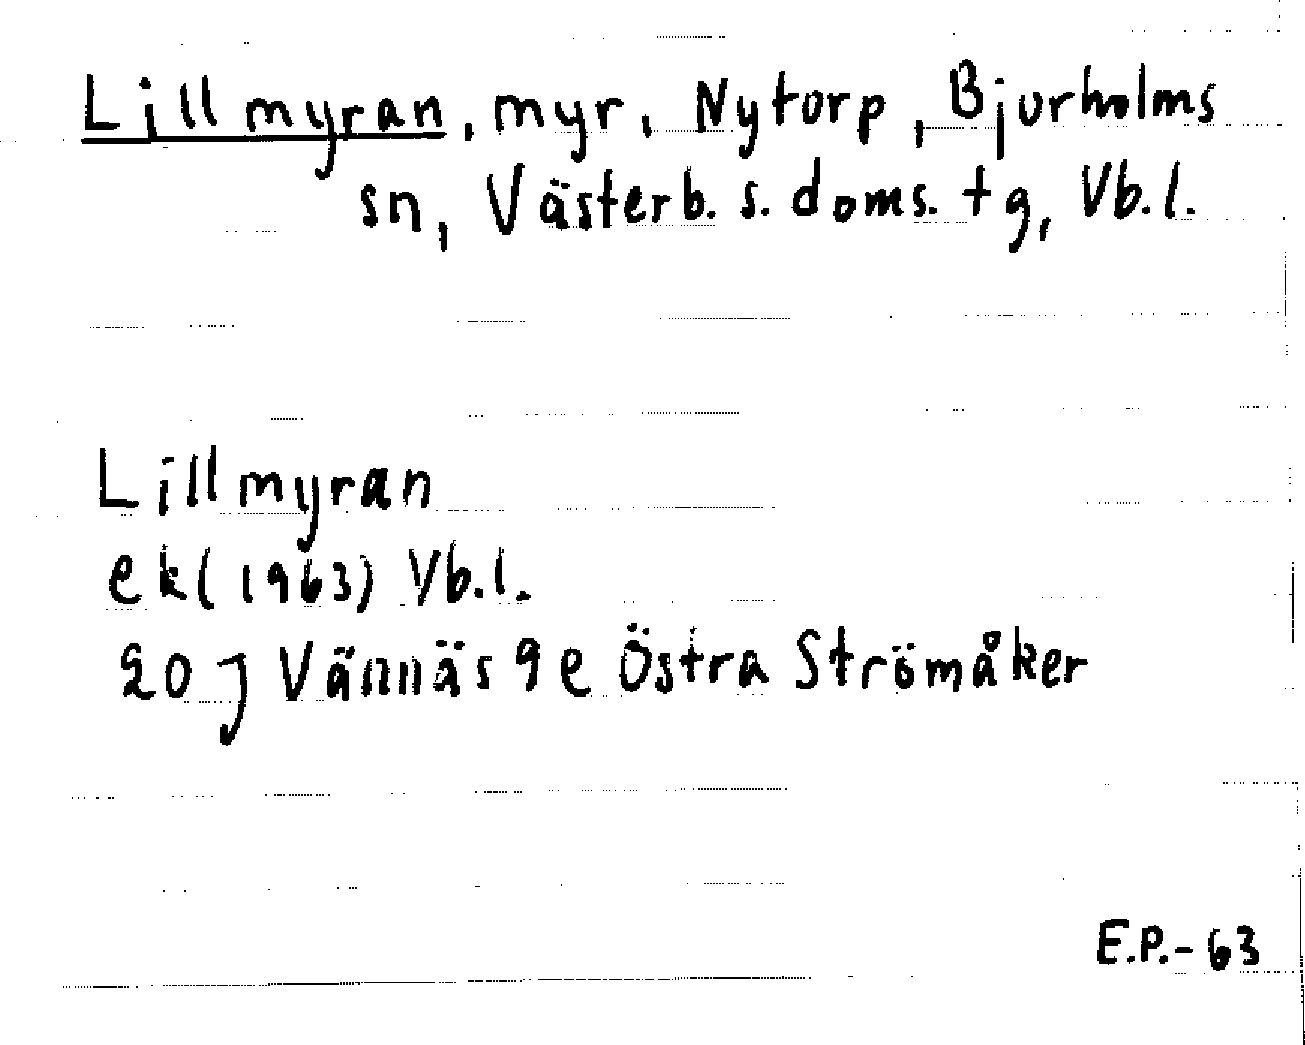 Lillmyran, myr, Nytorp, Bjurholms
sn, Västerb. s. doms. tg, Vb.l.
Lillmyran
ek (1963) Vb.l.
20 J Vännäs 9e Östra Strömåker
E.P.-63